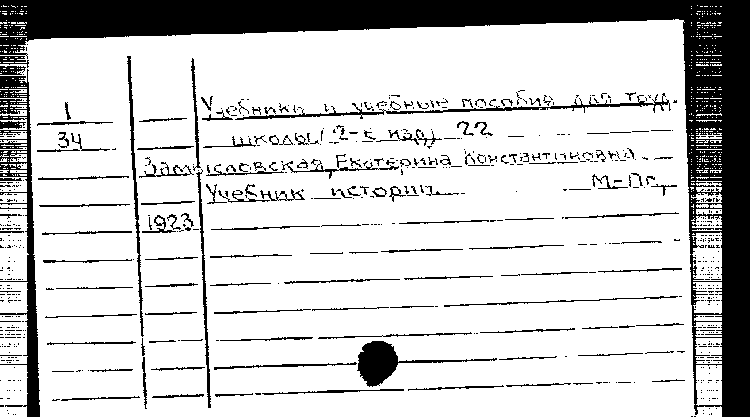 1 Учебники и учебные пособия для труд.
34 школы/2-е изд/ 22
Замысловская, Екатерина Константиновна.
Учебник истории. М-Пг,
1923